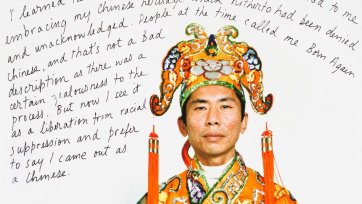 I learned to me
embracing my Chinese heritage which hitherto had been denied
and unacknowledged. People at the time called me Born Again
Chinese, and that's not a bad
description as there was a
certain zealousness to the
process. But now I see it
as a liberation from racial
suppression and prefer
to say I came out as
a Chinese.